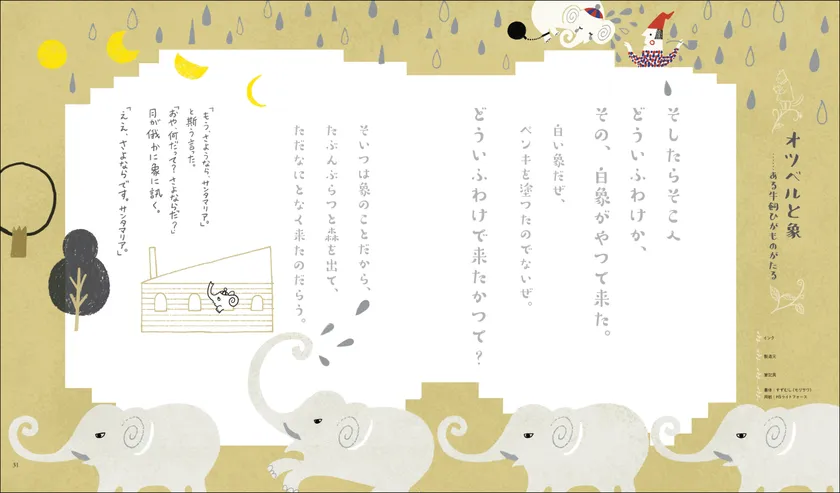 オツベルと象
……ある牛飼ひがものがたる
そしたらそこ人
どういふわけか、
その、白象がやつて来た。
白い象だぜ、
ペンキを塗つたのでないぜ。
どういふわけで来たかつて？
そいつは象のことだから、
たぶんぶらつと森を出て、
ただなにとなく来たのだらう。
「もう、さようなら、サンタマリア。」
と斯う言った。
「おや、何だって？さよならだ？」
月が俄かに象に訊く。
「ええ、さよならです。サンタマリア。」
インク
製造元
31